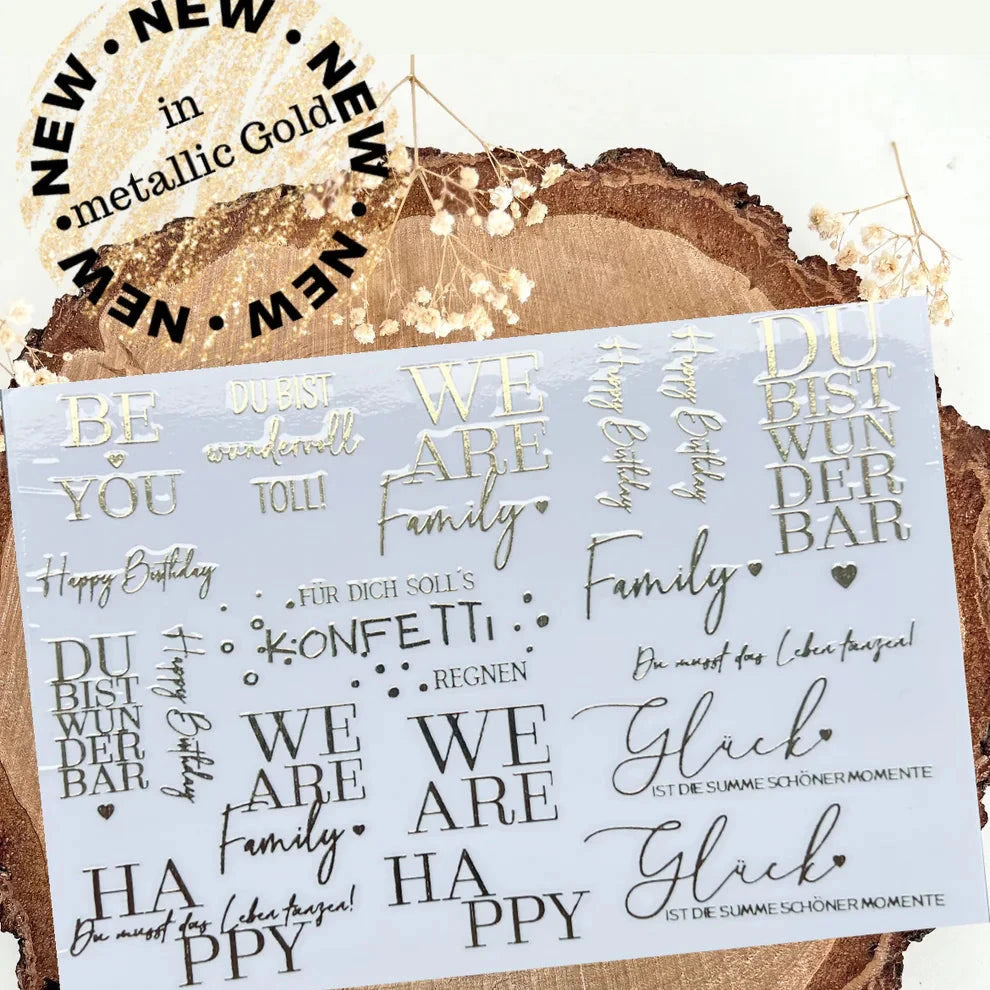 NEW • NEW • NEW • NEW • NEW • NEW • NEW •
in
metallic Gold
BE
YOU
DU BIST
wundervoll
TOLL!
WE
ARE
Family
Happy Birthday
Happy Birthday
DU
BIST
WUN
DER
BAR
Happy Birthday
FÜR DICH SOLL´S
KONFETTI
REGNEN
Family
Du musst das Leben tanzen!
DU
BIST
WUN
DER
BAR
Happy Birthday
WE
ARE
Family
WE
ARE
Glück
IST DIE SUMME SCHÖNER MOMENTE
HA
PPY
Du musst das Leben tanzen!
HA
PPY
Glück
IST DIE SUMME SCHÖNER MOMENTE